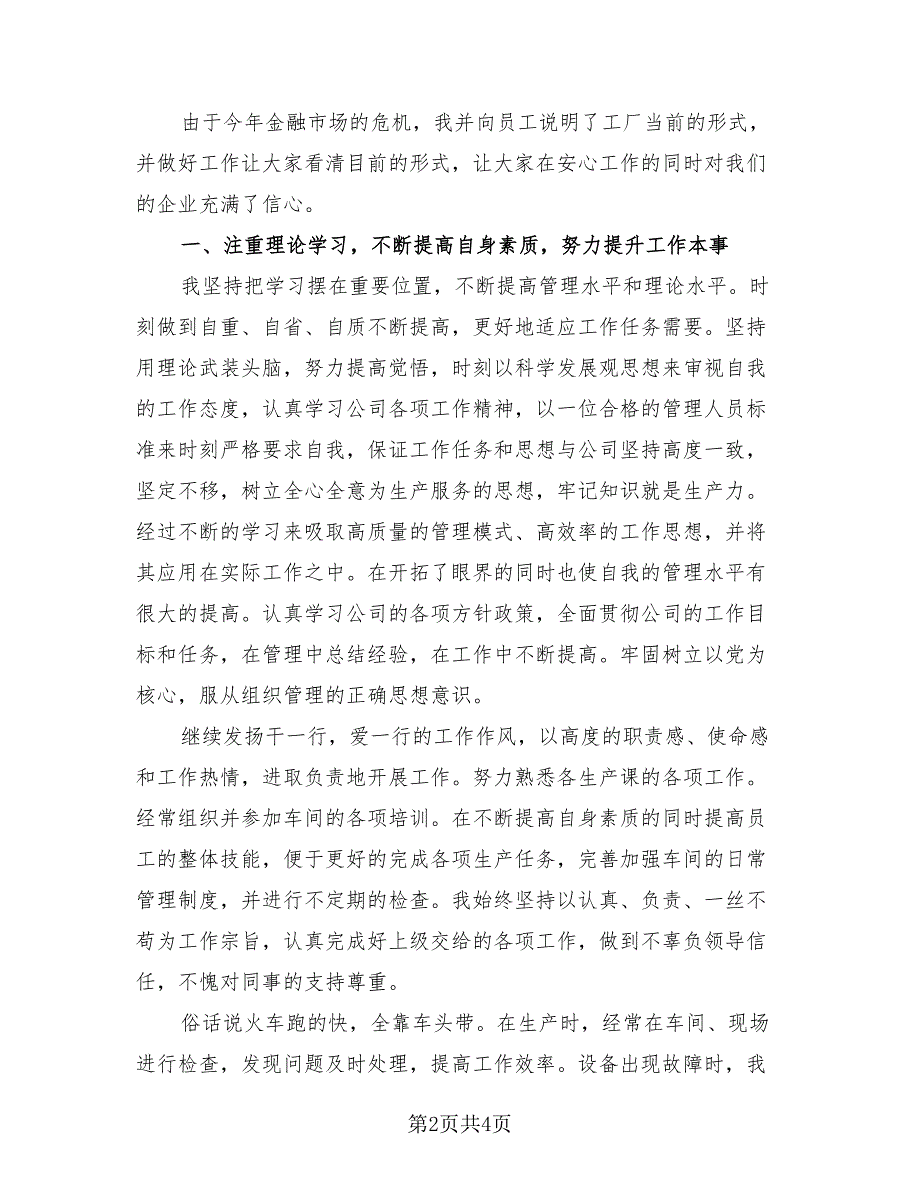 由于今年金融市场的危机，我并向员工说明了工厂当前的形式，
并做好工作让大家看清目前的形式，让大家在安心工作的同时对我们
的企业充满了信心。
一、注重理论学习，不断提高自身素质，努力提升工作本事
我坚持把学习摆在重要位置，不断提高管理水平和理论水平。时
刻做到自重、自省、自质不断提高，更好地适应工作任务需要。坚持
用理论武装头脑，努力提高觉悟，时刻以科学发展观思想来审视自我
的工作态度，认真学习公司各项工作精神，以一位合格的管理人员标
准来时刻严格要求自我，保证工作任务和思想与公司坚持高度一致，
坚定不移，树立全心全意为生产服务的思想，牢记知识就是生产力。
经过不断的学习来吸取高质量的管理模式、高效率的工作思想，并将
其应用在实际工作之中。在开拓了眼界的同时也使自我的管理水平有
很大的提高。认真学习公司的各项方针政策，全面贯彻公司的工作目
标和任务，在管理中总结经验，在工作中不断提高。牢固树立以党为
核心，服从组织管理的正确思想意识。
继续发扬干一行，爱一行的工作作风，以高度的职责感、使命感
和工作热情，进取负责地开展工作。努力熟悉各生产课的各项工作。
经常组织并参加车间的各项培训。在不断提高自身素质的同时提高员
工的整体技能，便于更好的完成各项生产任务，完善加强车间的日常
管理制度，并进行不定期的检查。我始终坚持以认真、负责、一丝不
苟为工作宗旨，认真完成好上级交给的各项工作，做到不辜负领导信
任，不愧对同事的支持尊重。
俗话说火车跑的快，全靠车头带。在生产时，经常在车间、现场
进行检查，发现问题及时处理，提高工作效率。设备出现故障时，我
第2页共4页